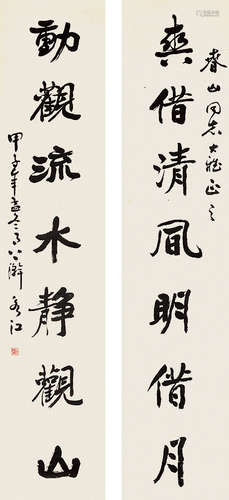 春山同志大雅正之
爽借清風明借月
動觀流水靜觀山
甲子年孟冬